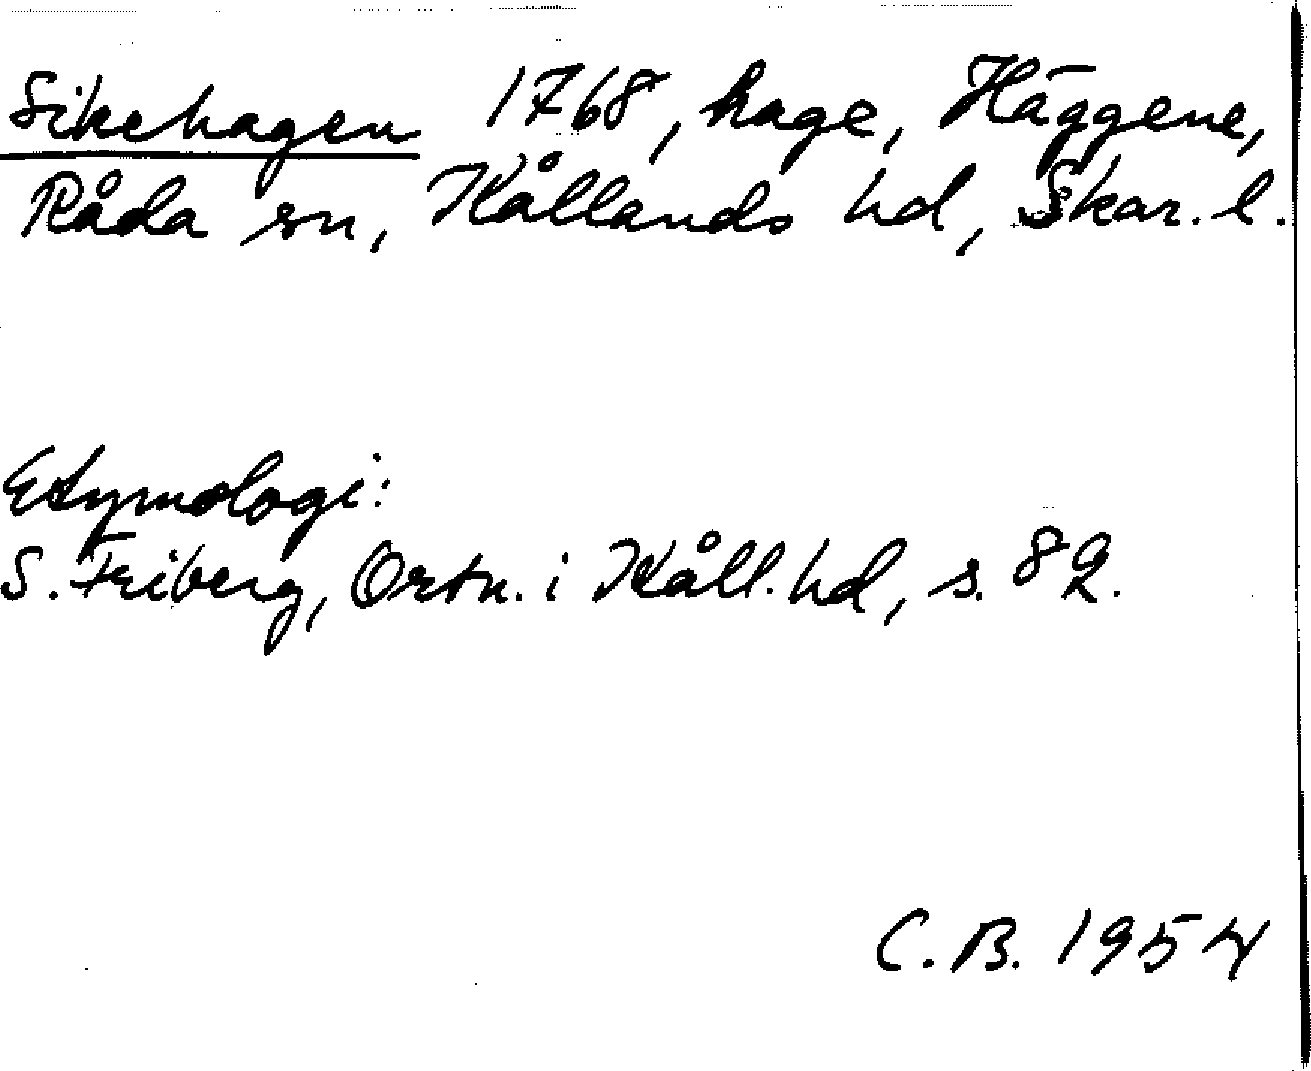 Sikehagen 1768, hage, Häggene,
Råda sn, Kållands hd, Skar. l.
Etymologi:
S. Friberg, Ortn. i Kåll. hd, s. 82.
C.B. 1954